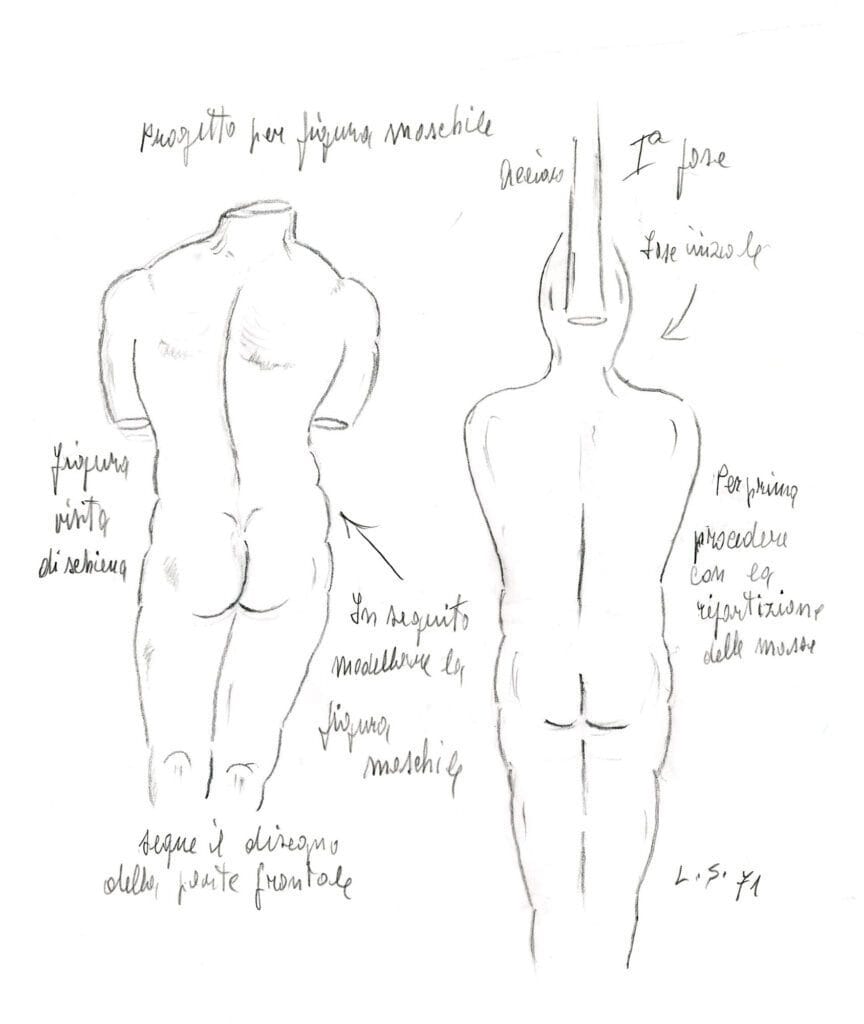 Progetto per figura maschile
Acciaio
Iª fase
Fase iniziale
Figura
vista
di schiena
Per prima
procedere
con la
ripartizione
delle masse
In seguito
modellare la
figura
maschile
segue il disegno
della parte frontale
L. S. 71